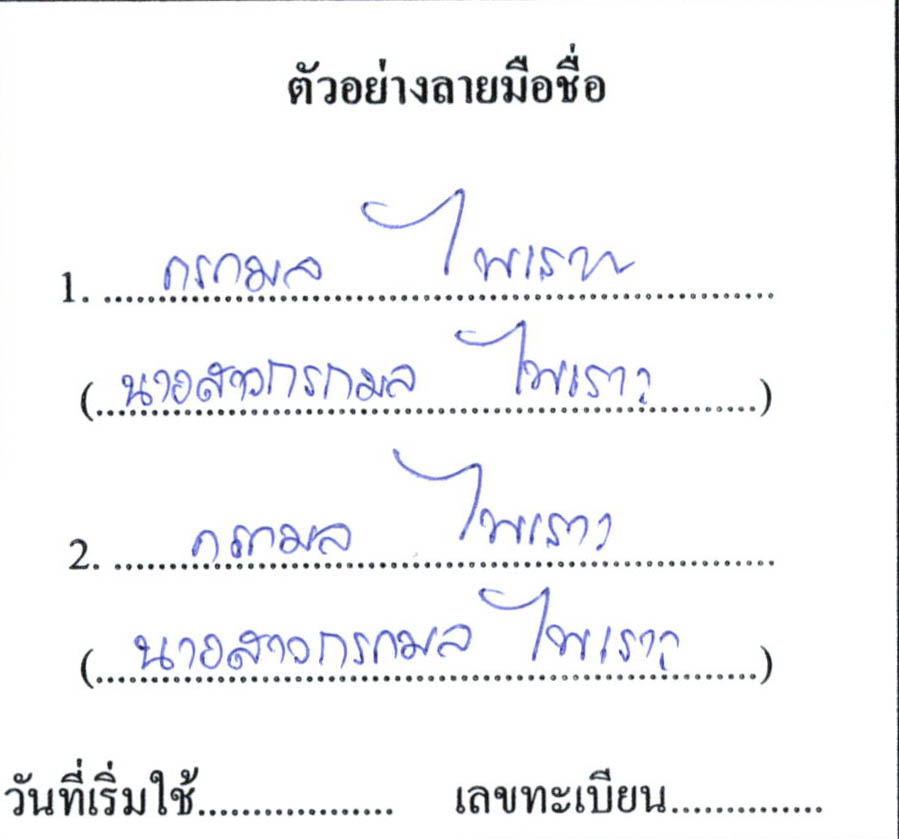 ตัวอย่างลายมือชื่อ
1. กรกมล ไพเราะ
(นางสาวกรกมล ไพเราะ)
2. กรกมล ไพเราะ
(นางสาวกรกมล ไพเราะ)
วันที่เริ่มใช้................. เลขทะเบียน..............